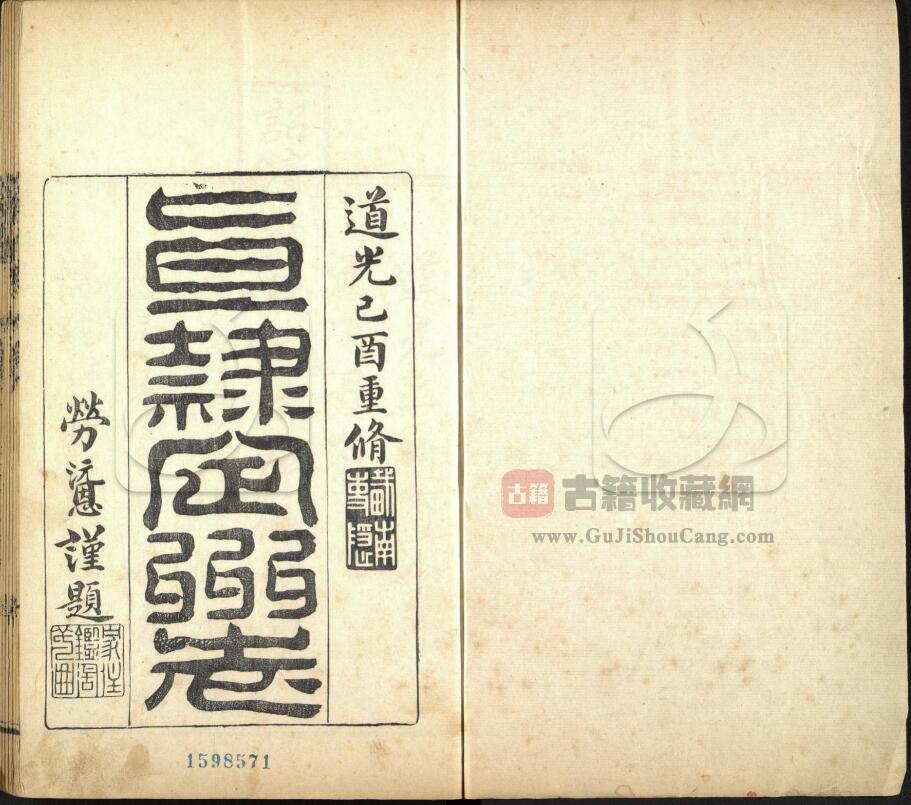 道光己酉重脩
直隸定州志
勞
謹題
1598571
古籍
古籍收藏網
www.GuJiShouCang.com